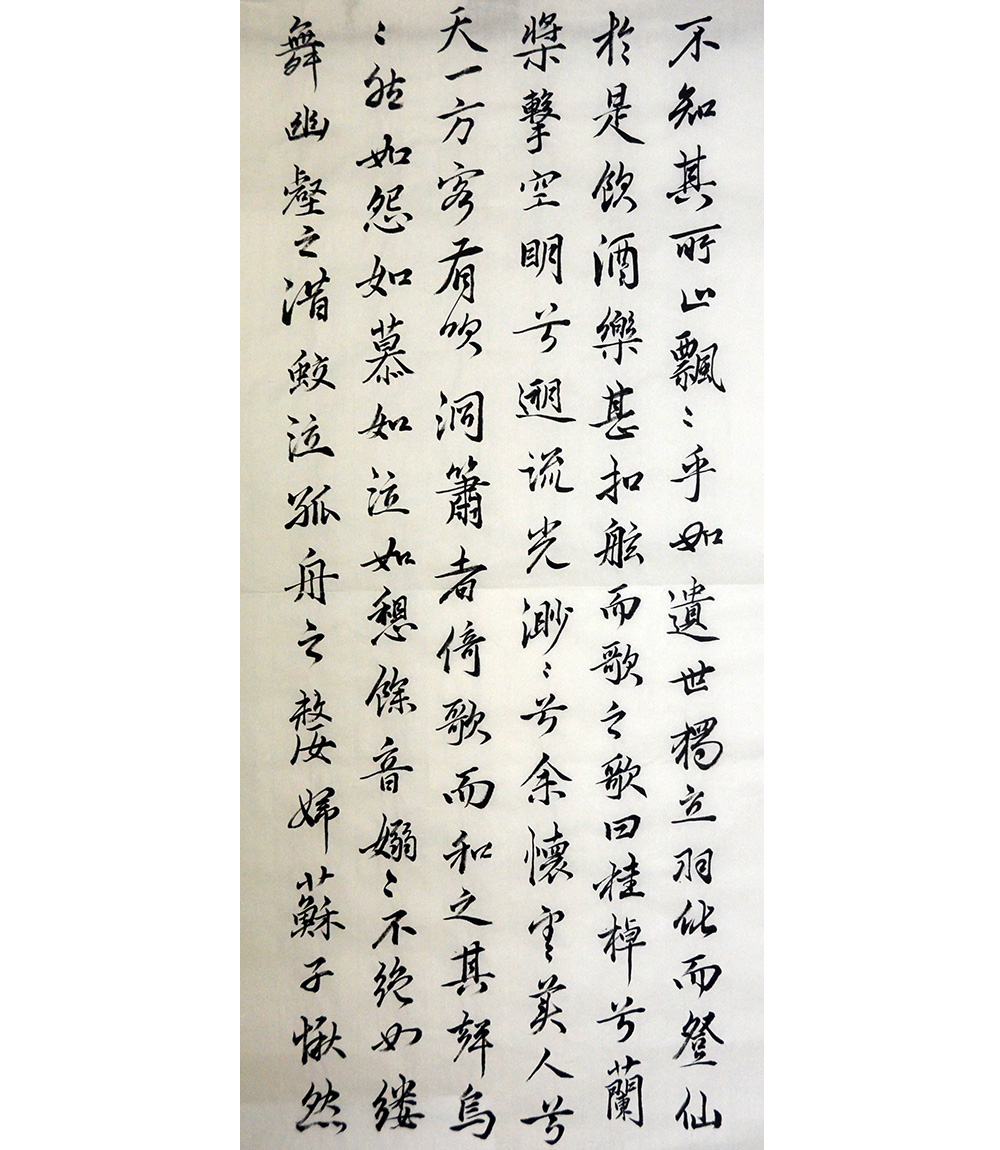 不知其所止飄〻乎如遺世獨立羽化而登仙
於是飲酒樂甚扣舷而歌之歌曰桂棹兮蘭
槳擊空明兮遡流光渺〻兮余懷望美人兮
天一方客有吹洞簫者倚歌而和之其聲烏
〻然如怨如慕如泣如愬餘音嫋〻不絕如縷
舞幽壑之潛蛟泣孤舟之嫠婦蘇子愀然